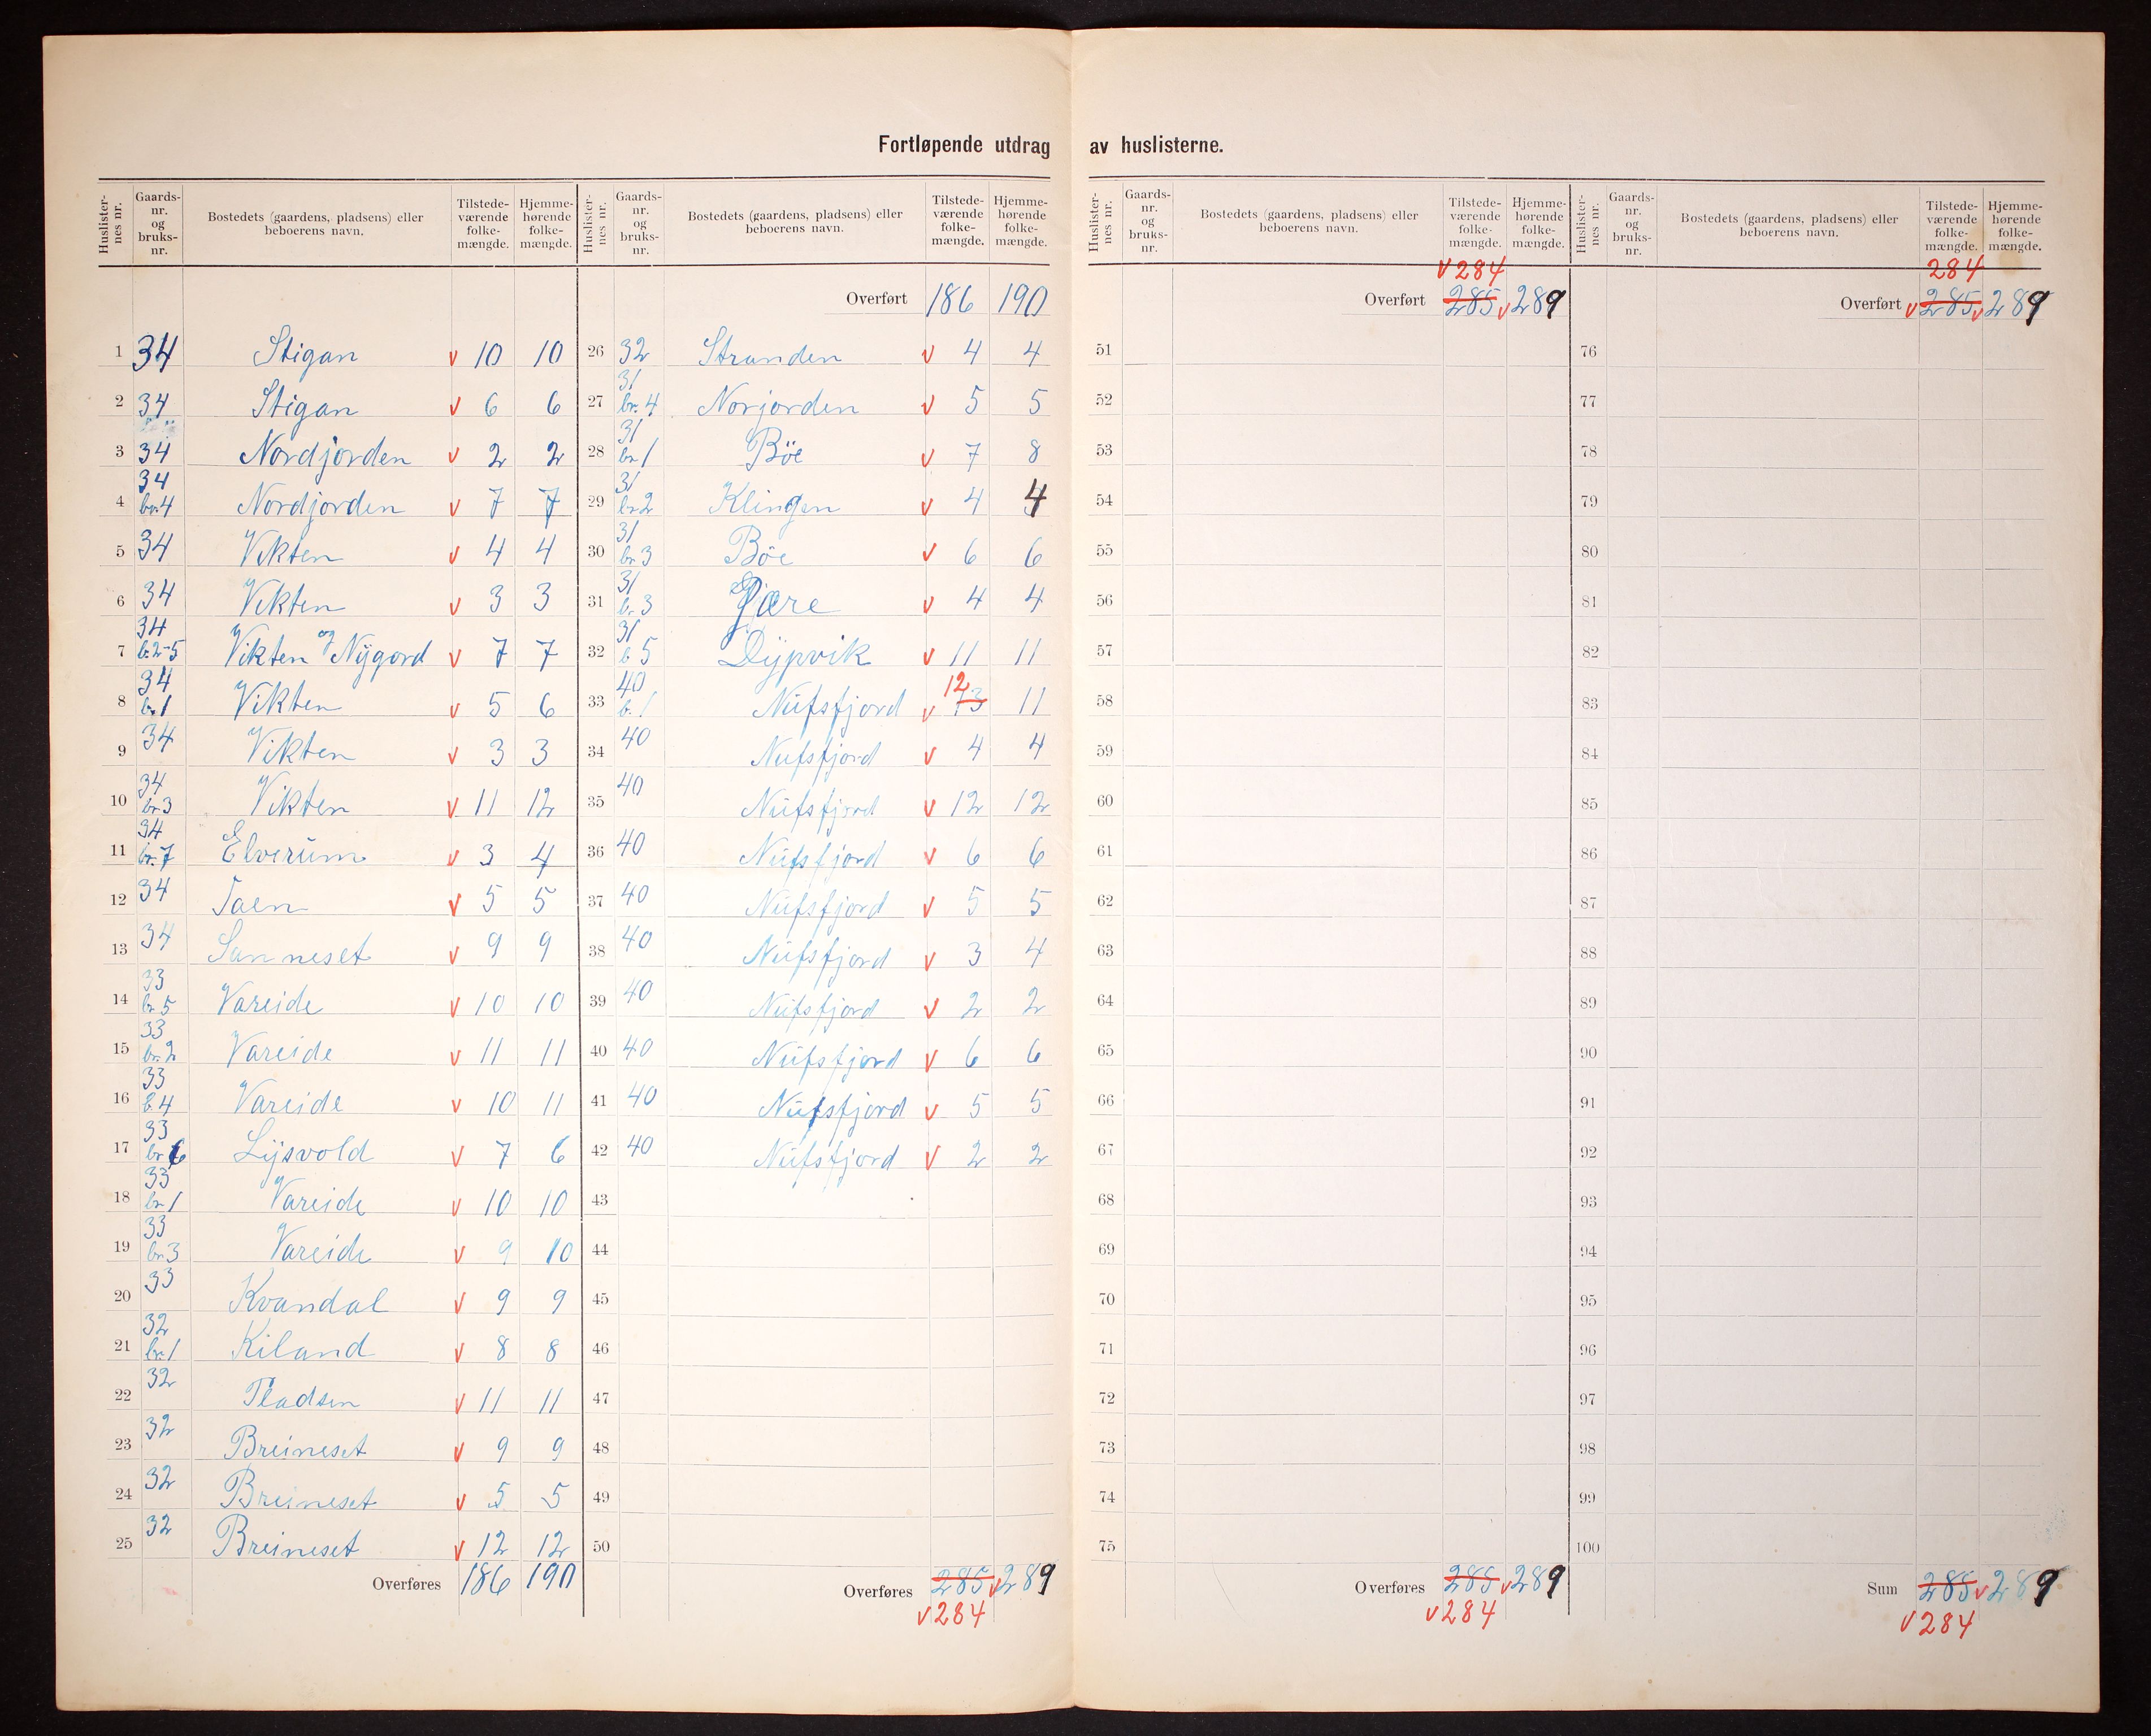 Fortløpende utdrag av huslisterne.
Huslister-nes nr. Gaards-nr. og bruks-nr. Bostedets (gaardens, pladsens) eller beboerens navn. Tilstede-værende folke-mængde. Hjemme-hørende folke-mængde.
1 34 Stigan v 10 10
2 34 Stigan v 6 6
3 34 Nordjorden v 2 2
4 34 br. 4 Nordjorden v 7 7
5 34 Vikten v 4 4
6 34 Vikten v 3 3
7 34 b. 2-5 Vikten og Nÿgord v 7 7
8 34 br. 1 Vikten v 5 6
9 34 Vikten v 3 3
10 34 br. 3 Vikten v 11 12
11 34 br. 7 Elverum v 3 4
12 34 Taen v 5 5
13 34 Sanneset v 9 9
14 33 br. 5 Vareide v 10 10
15 33 br. 2 Vareide v 11 11
16 33 b. 4 Vareide v 10 11
17 33 br 6 Lÿsvold v 7 6
18 33 br. 1 Vareide v 10 10
19 33 br. 3 Vareide v 9 10
20 33 Kvandal v 9 9
21 32 br. 1 Kiland v 8 8
22 32 Pladsen v 11 11
23 32 Breineset v 9 9
24 32 Breineset v 5 5
25 32 Breineset v 12 12
Overføres 186 190
Huslister-nes nr. Gaards-nr. og bruks-nr. Bostedets (gaardens, pladsens) eller beboerens navn. Tilstede-værende folke-mængde. Hjemme-hørende folke-mængde.
Overført 186 190
26 32 Stranden v 4 4
27 31 br. 4 Norjorden v 5 5
28 31 br. 1 Böe v 7 8
29 31 br. 2 Klingen v 4 4
30 31 br. 3 Böe v 6 6
31 31 b. 3 Jære v 4 4
32 31 b 5 Dÿpvik v 11 11
33 40 b. 1 Nufsfjord v 13 12 11
34 40 Nufsfjord v 4 4
35 40 Nufsfjord v 12 12
36 40 Nufsfjord v 6 6
37 40 Nufsfjord v 5 5
38 40 Nufsfjord v 3 4
39 40 Nufsfjord v 2 2
40 40 Nufsfjord v 6 6
41 40 Nufsfjord v 5 5
42 40 Nufsfjord v 2 2
43
44
45
46
47
48
49
50
Overføres 285 v 289
v 284
Huslister-nes nr. Gaards-nr. og bruks-nr. Bostedets (gaardens, pladsens) eller beboerens navn. Tilstede-værende folke-mængde. Hjemme-hørende folke-mængde.
v 284
Overført 285 v 289
51
52
53
54
55
56
57
58
59
60
61
62
63
64
65
66
67
68
69
70
71
72
73
74
75
Overføres 285 v 289
v 284
Huslister-nes nr. Gaards-nr. og bruks-nr. Bostedets (gaardens, pladsens) eller beboerens navn. Tilstede-værende folke-mængde. Hjemme-hørende folke-mængde.
284
Overført v 285 v 289
76
77
78
79
80
81
82
83
84
85
86
87
88
89
90
91
92
93
94
95
96
97
98
99
100
Sum 285 v 289
v 284